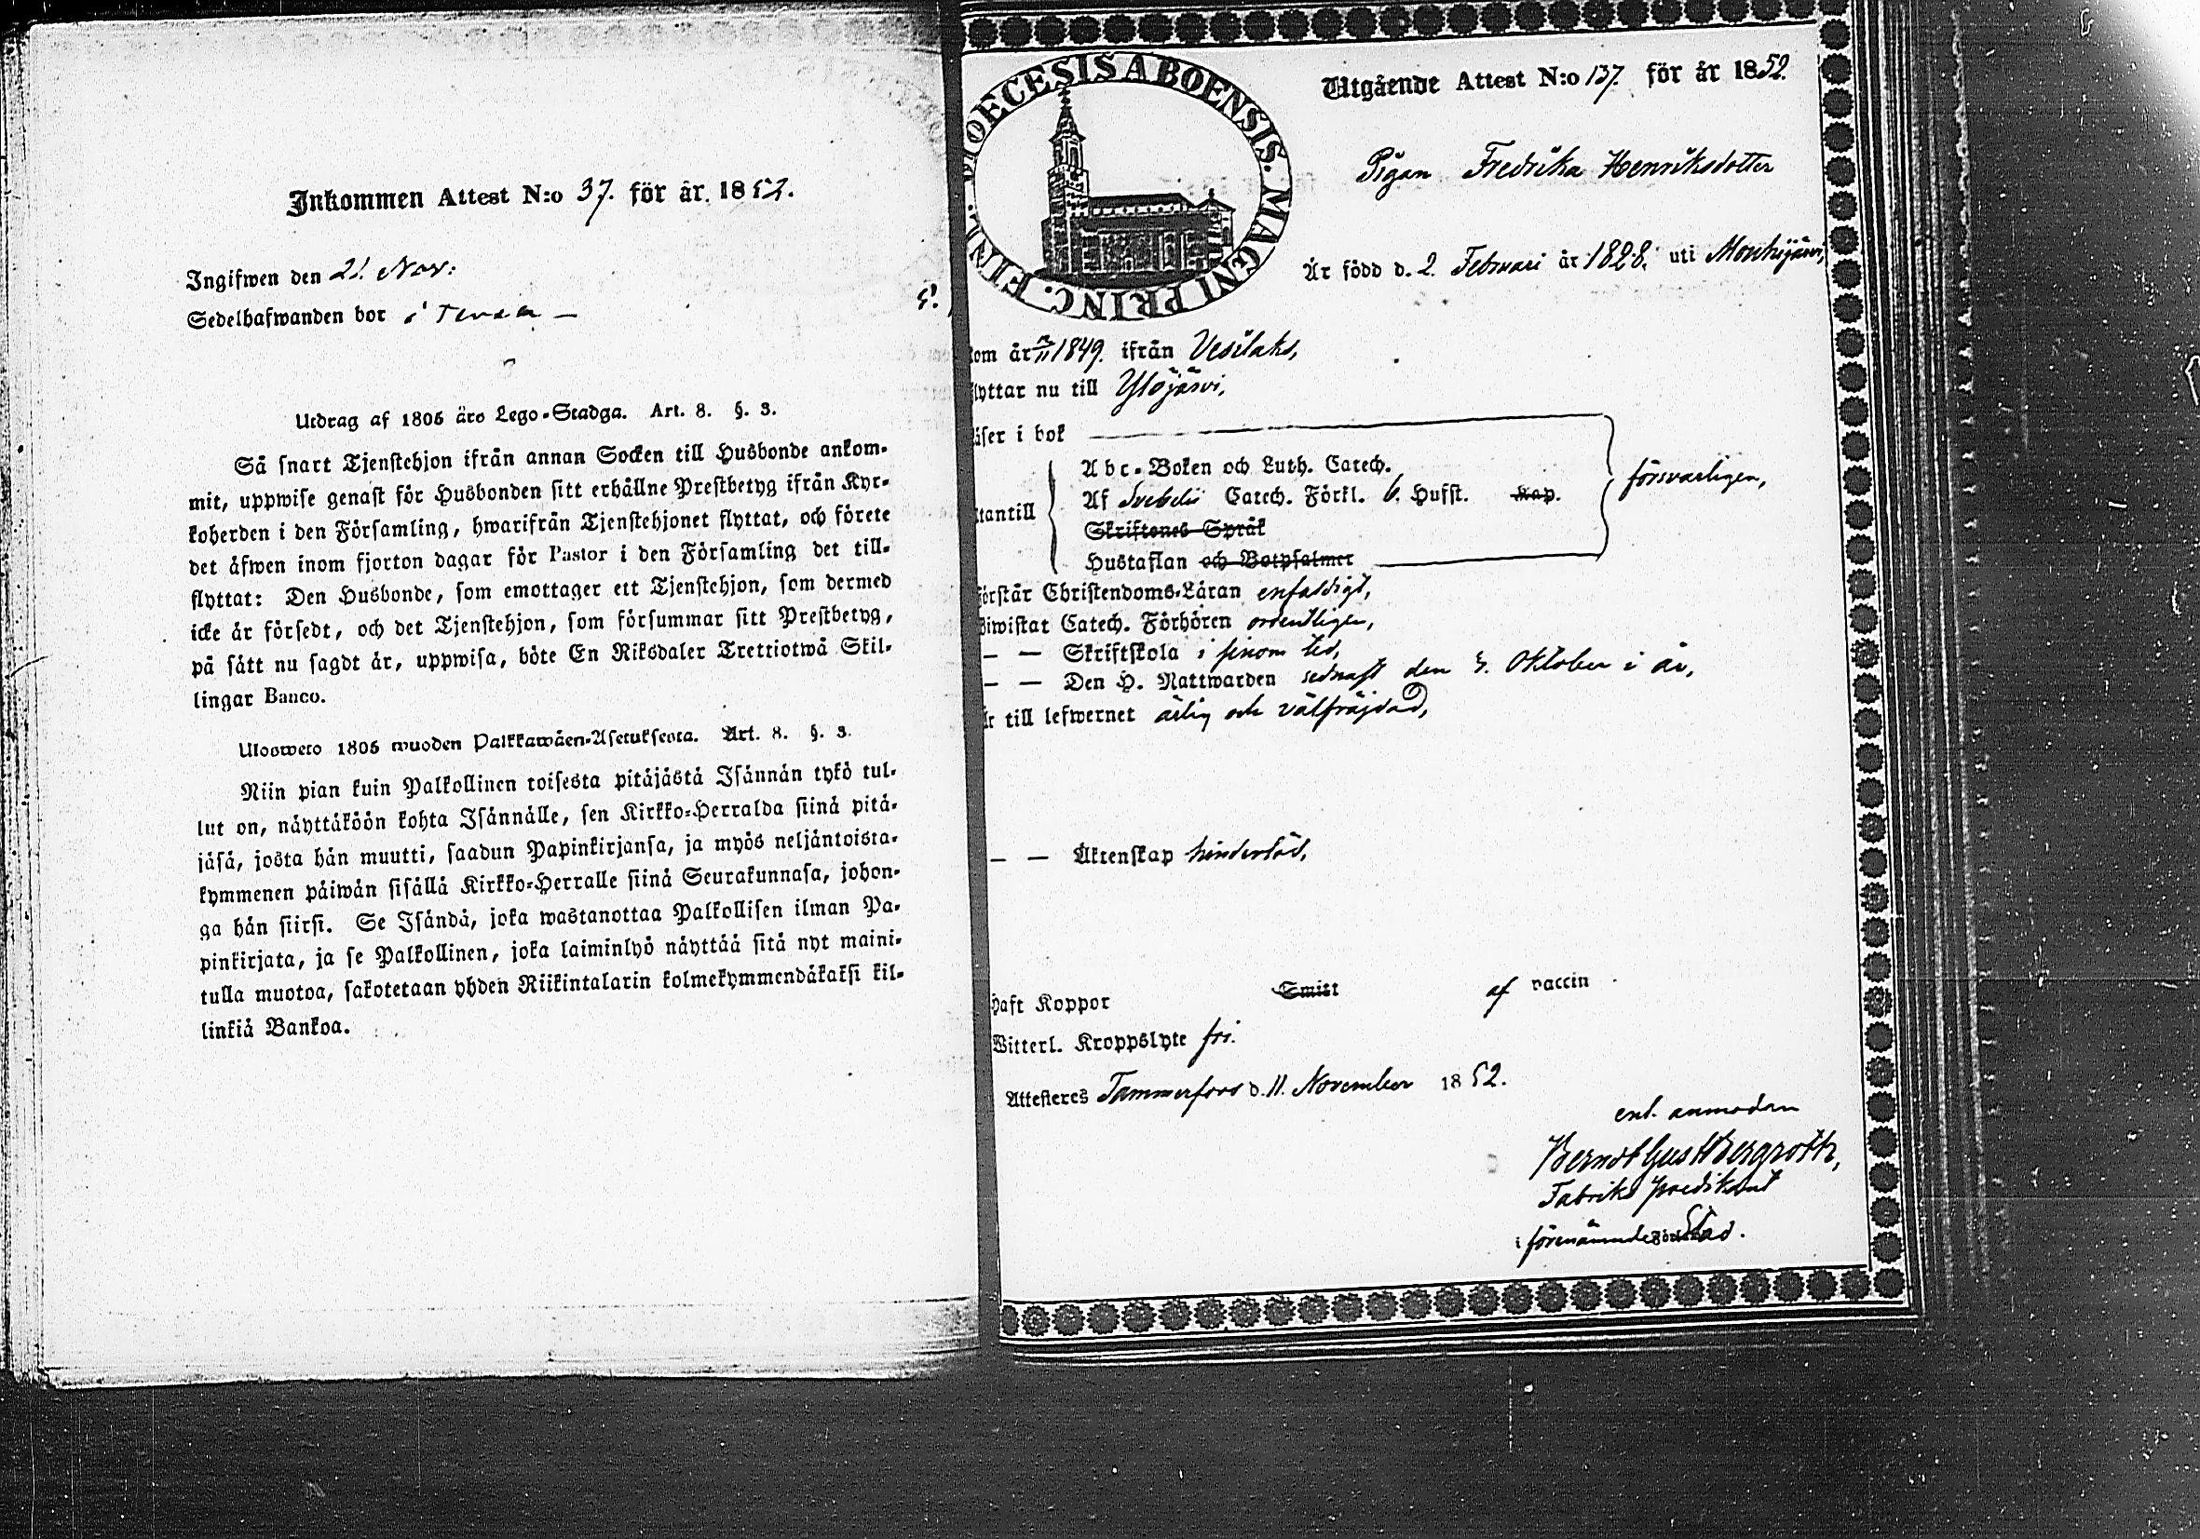 Inkommen Attest N:o 37. för år 1852.
Ingifwen den 21 Nov:
Sedelhafwanden bor i
Utdrag af 1805 års Lego-Stadga. Art. 8. §. 3.
Så snart Tjenstehjon ifrån annan Socken till Husbonde ankom-
mit, uppwise genast för Husbonden sitt erhållne Prestbetyg ifrån Kyr-
koherden i den Församling, hwarifrån Tjenstehjonet flyttat, och förete
det äfwen inom fjorton dagar för Pastor i den Församling det till-
flyttat: Den Husbonde, som emottager ett Tjenstehjon, som dermed
icke är försedt, och det Tjenstehjon, som försummar sitt Prestbetyg,
på sätt nu sagdt är, uppwisa, böte En Riksdaler Trettiotwå Skil-
lingar Banco.
Ulosweto 1805 wuoden Palkkawäen-Asetuksesta. Art. 8. §. 3.
Niin pian kuin Palkollinen toisesta pitäjästä Isännän tykö tul-
lut on, näyttäköön kohta Isännälle, sen Kirkko-Herralda siinä pitä-
jäsä, josta hän muutti, saadun Papinkirjansa, ja myös neljäntoista-
kymmenen päiwän sisällä Kirkko-Herralle siinä Seurakunnasa, johon-
ga hän siirsi. Se Isändä, joka wastanottaa Palkollisen ilman Pa-
pinkirjata, ja se Palkollinen, joka laiminlyö näyttää sitä nyt maini-
tulla muotoa, sakotetaan yhden Riikintalarin kolmekymmendäkaksi kil-
linkiä Bankoa.
DIOECESIS ABOENSIS. MAGNI PRINC. FINL.
Utgående Attest N:o 137. för år 1852.
Pigan Fredrika Henriksdotter
Är född d. 2. Februari år 1828. uti Mouhijärvi,
kom år 1849. ifrån Vesilaks,
flyttar nu till Ylöjärvi,
läser i bok
Abc-Boken och Luth. Catech.
utantill Af Svebelii Catech. Förkl. 6. Hufst. Kap. försvarligen,
Skriftenes Språk
Hustaflan och Botpsalmer
förstår Christendoms-Läran enfaldigt,
biwistat Catech. Förhören ordentligen,
— — Skriftskola i sinom tid,
— — Den H. Nattwarden sednast den 3. Oktober i år,
är till lefwernet ärlig och välfräjdad,
— — Äktenskap hinderlös,
haft Koppor Smitt af vaccin
Witterl. Kroppslyte fri.
Attesteres Tammerfors d. 11. November 1852.
enl. anmodan
Berndt Gust Bergroth,
Fabriks predikant
i förenämnde Stad.